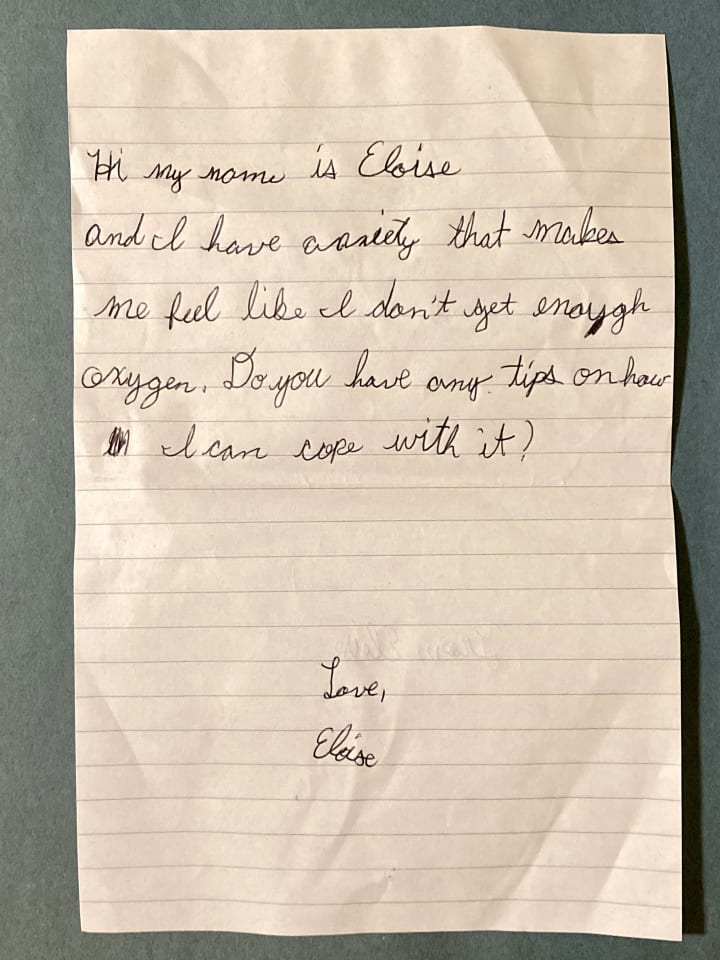 Hi my name is Eloise
and I have anxiety that makes
me feel like I don't get enough
oxygen. Do you have any tips on how
I can cope with it?
Love,
Eloise